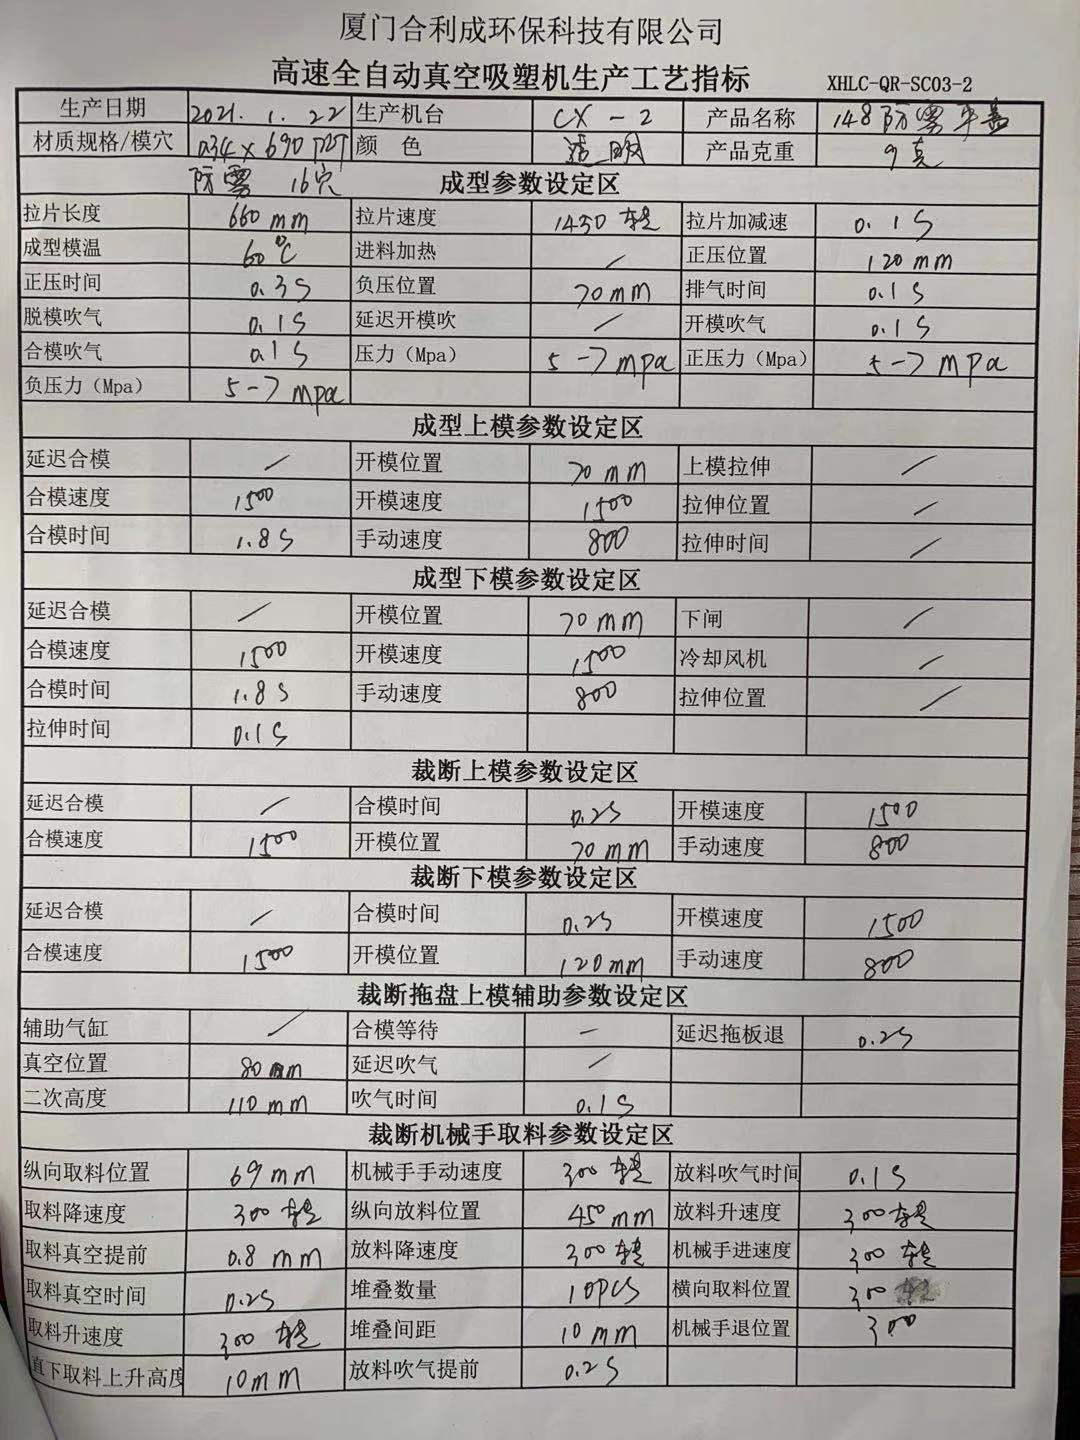 厦门合利成环保科技有限公司
高速全自动真空吸塑机生产工艺指标 XHLC-QR-SC03-2
生产日期 2021.1.22 生产机台 CX-2 产品名称 148防雾平盖
材质规格/模穴 0.34×690 PET 颜 色 透明 产品克重 9克
防雾 16穴 成型参数设定区
拉片长度 660mm 拉片速度 1450转 拉片加减速 0.1S
成型模温 60℃ 进料加热 / 正压位置 120mm
正压时间 0.3S 负压位置 70mm 排气时间 0.1S
脱模吹气 0.1S 延迟开模吹 / 开模吹气 0.1S
合模吹气 0.1S 压力（Mpa） 5-7mpa 正压力（Mpa） 5-7mpa
负压力（Mpa） 5-7mpa
成型上模参数设定区
延迟合模 / 开模位置 70mm 上模拉伸 /
合模速度 1500 开模速度 1500 拉伸位置 /
合模时间 1.8S 手动速度 800 拉伸时间 /
成型下模参数设定区
延迟合模 / 开模位置 70mm 下闸 /
合模速度 1500 开模速度 1500 冷却风机 /
合模时间 1.8S 手动速度 800 拉伸位置 /
拉伸时间 0.1S
裁断上模参数设定区
延迟合模 / 合模时间 0.2S 开模速度 1500
合模速度 1500 开模位置 70mm 手动速度 800
裁断下模参数设定区
延迟合模 / 合模时间 0.2S 开模速度 1500
合模速度 1500 开模位置 120mm 手动速度 800
裁断拖盘上模辅助参数设定区
辅助气缸 / 合模等待 - 延迟拖板退 0.2S
真空位置 80mm 延迟吹气 /
二次高度 110mm 吹气时间 0.1S
裁断机械手取料参数设定区
纵向取料位置 69mm 机械手手动速度 300转 放料吹气时间 0.1S
取料降速度 300转 纵向放料位置 450mm 放料升速度 300转
取料真空提前 0.8mm 放料降速度 300转 机械手进速度 300转
取料真空时间 0.2S 堆叠数量 10PCS 横向取料位置 300
取料升速度 300转 堆叠间距 10mm 机械手退位置 300
直下取料上升高度 10mm 放料吹气提前 0.2S